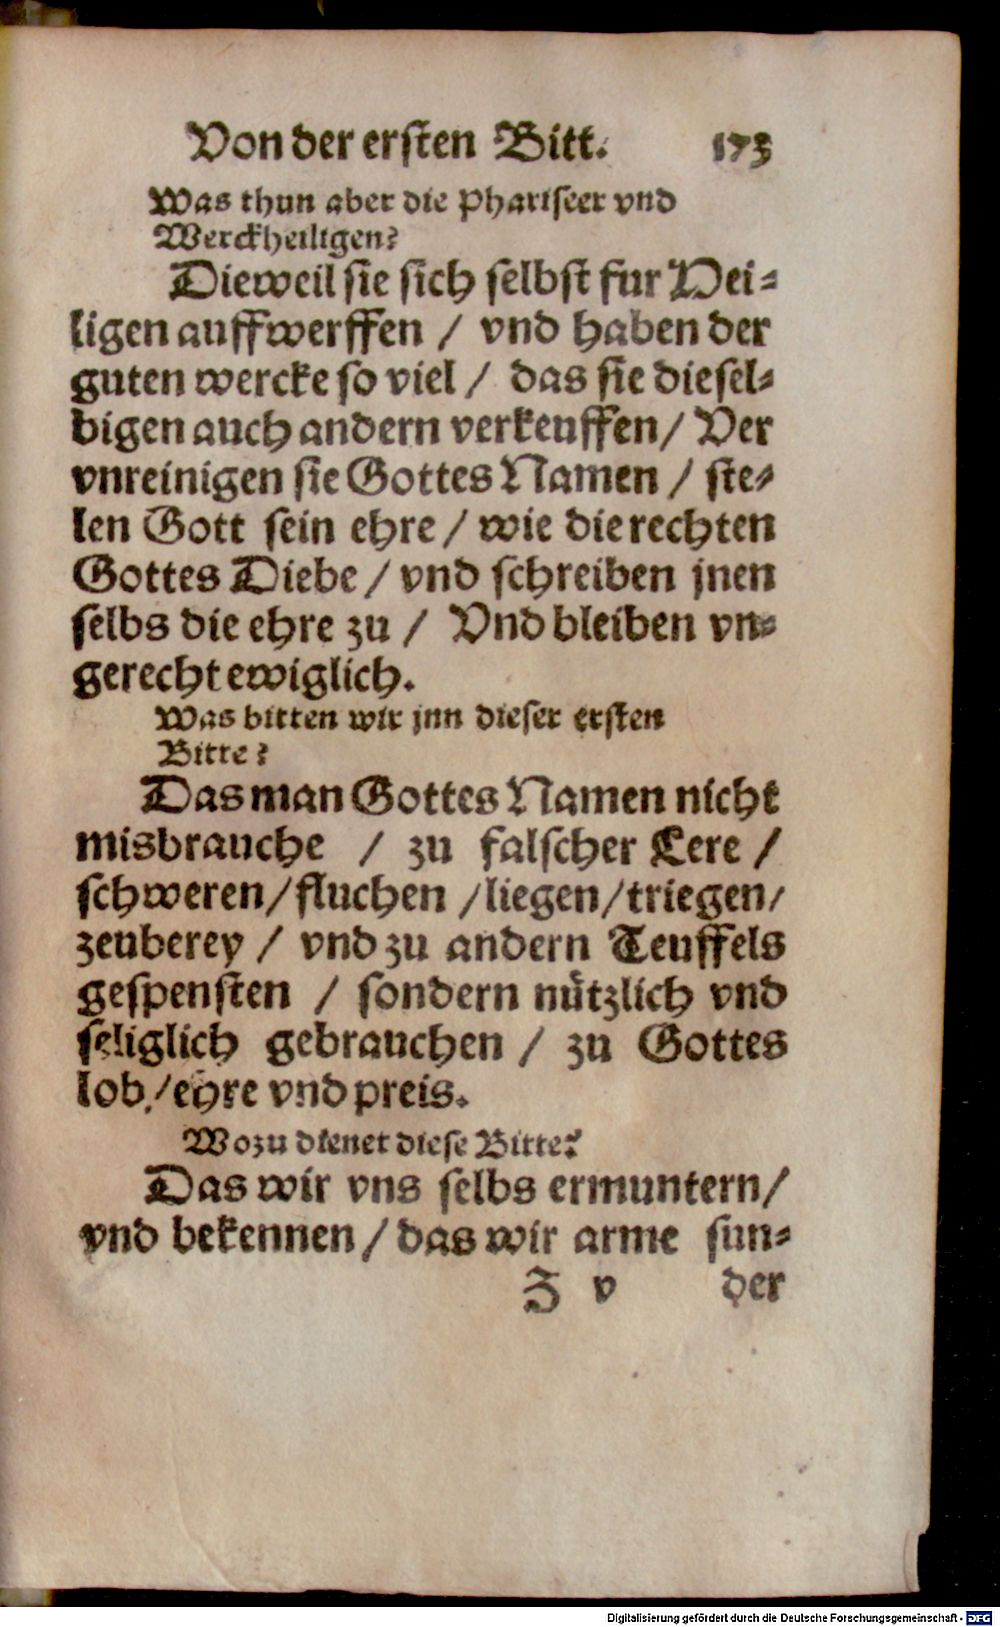 Von der ersten Bitt. 173
Was thun aber die Phariseer vnd
Werckheiligen?
Dieweil sie sich selbst fur Hei-
ligen auffwerffen / vnd haben der
guten wercke so viel / das sie diesel-
bigen auch andern verkeuffen / Ver
vnreinigen sie Gottes Namen / ste-
len Gott sein ehre / wie die rechten
Gottes Diebe / vnd schreiben jnen
selbs die ehre zu / Vnd bleiben vn-
gerecht ewiglich.
Was bitten wir jnn dieser ersten
Bitte?
Das man Gottes Namen nicht
misbrauche / zu falscher Lere /
schweren / fluchen / liegen / triegen /
zeuberey / vnd zu andern Teuffels
gespensten / sondern nützlich vnd
seliglich gebrauchen / zu Gottes
lob / ehre vnd preis.
Wozu dienet diese Bitte?
Das wir vns selbs ermuntern /
vnd bekennen / das wir arme sun-
Z v der
Digitalisierung gefördert durch die Deutsche Forschungsgemeinschaft - DFG